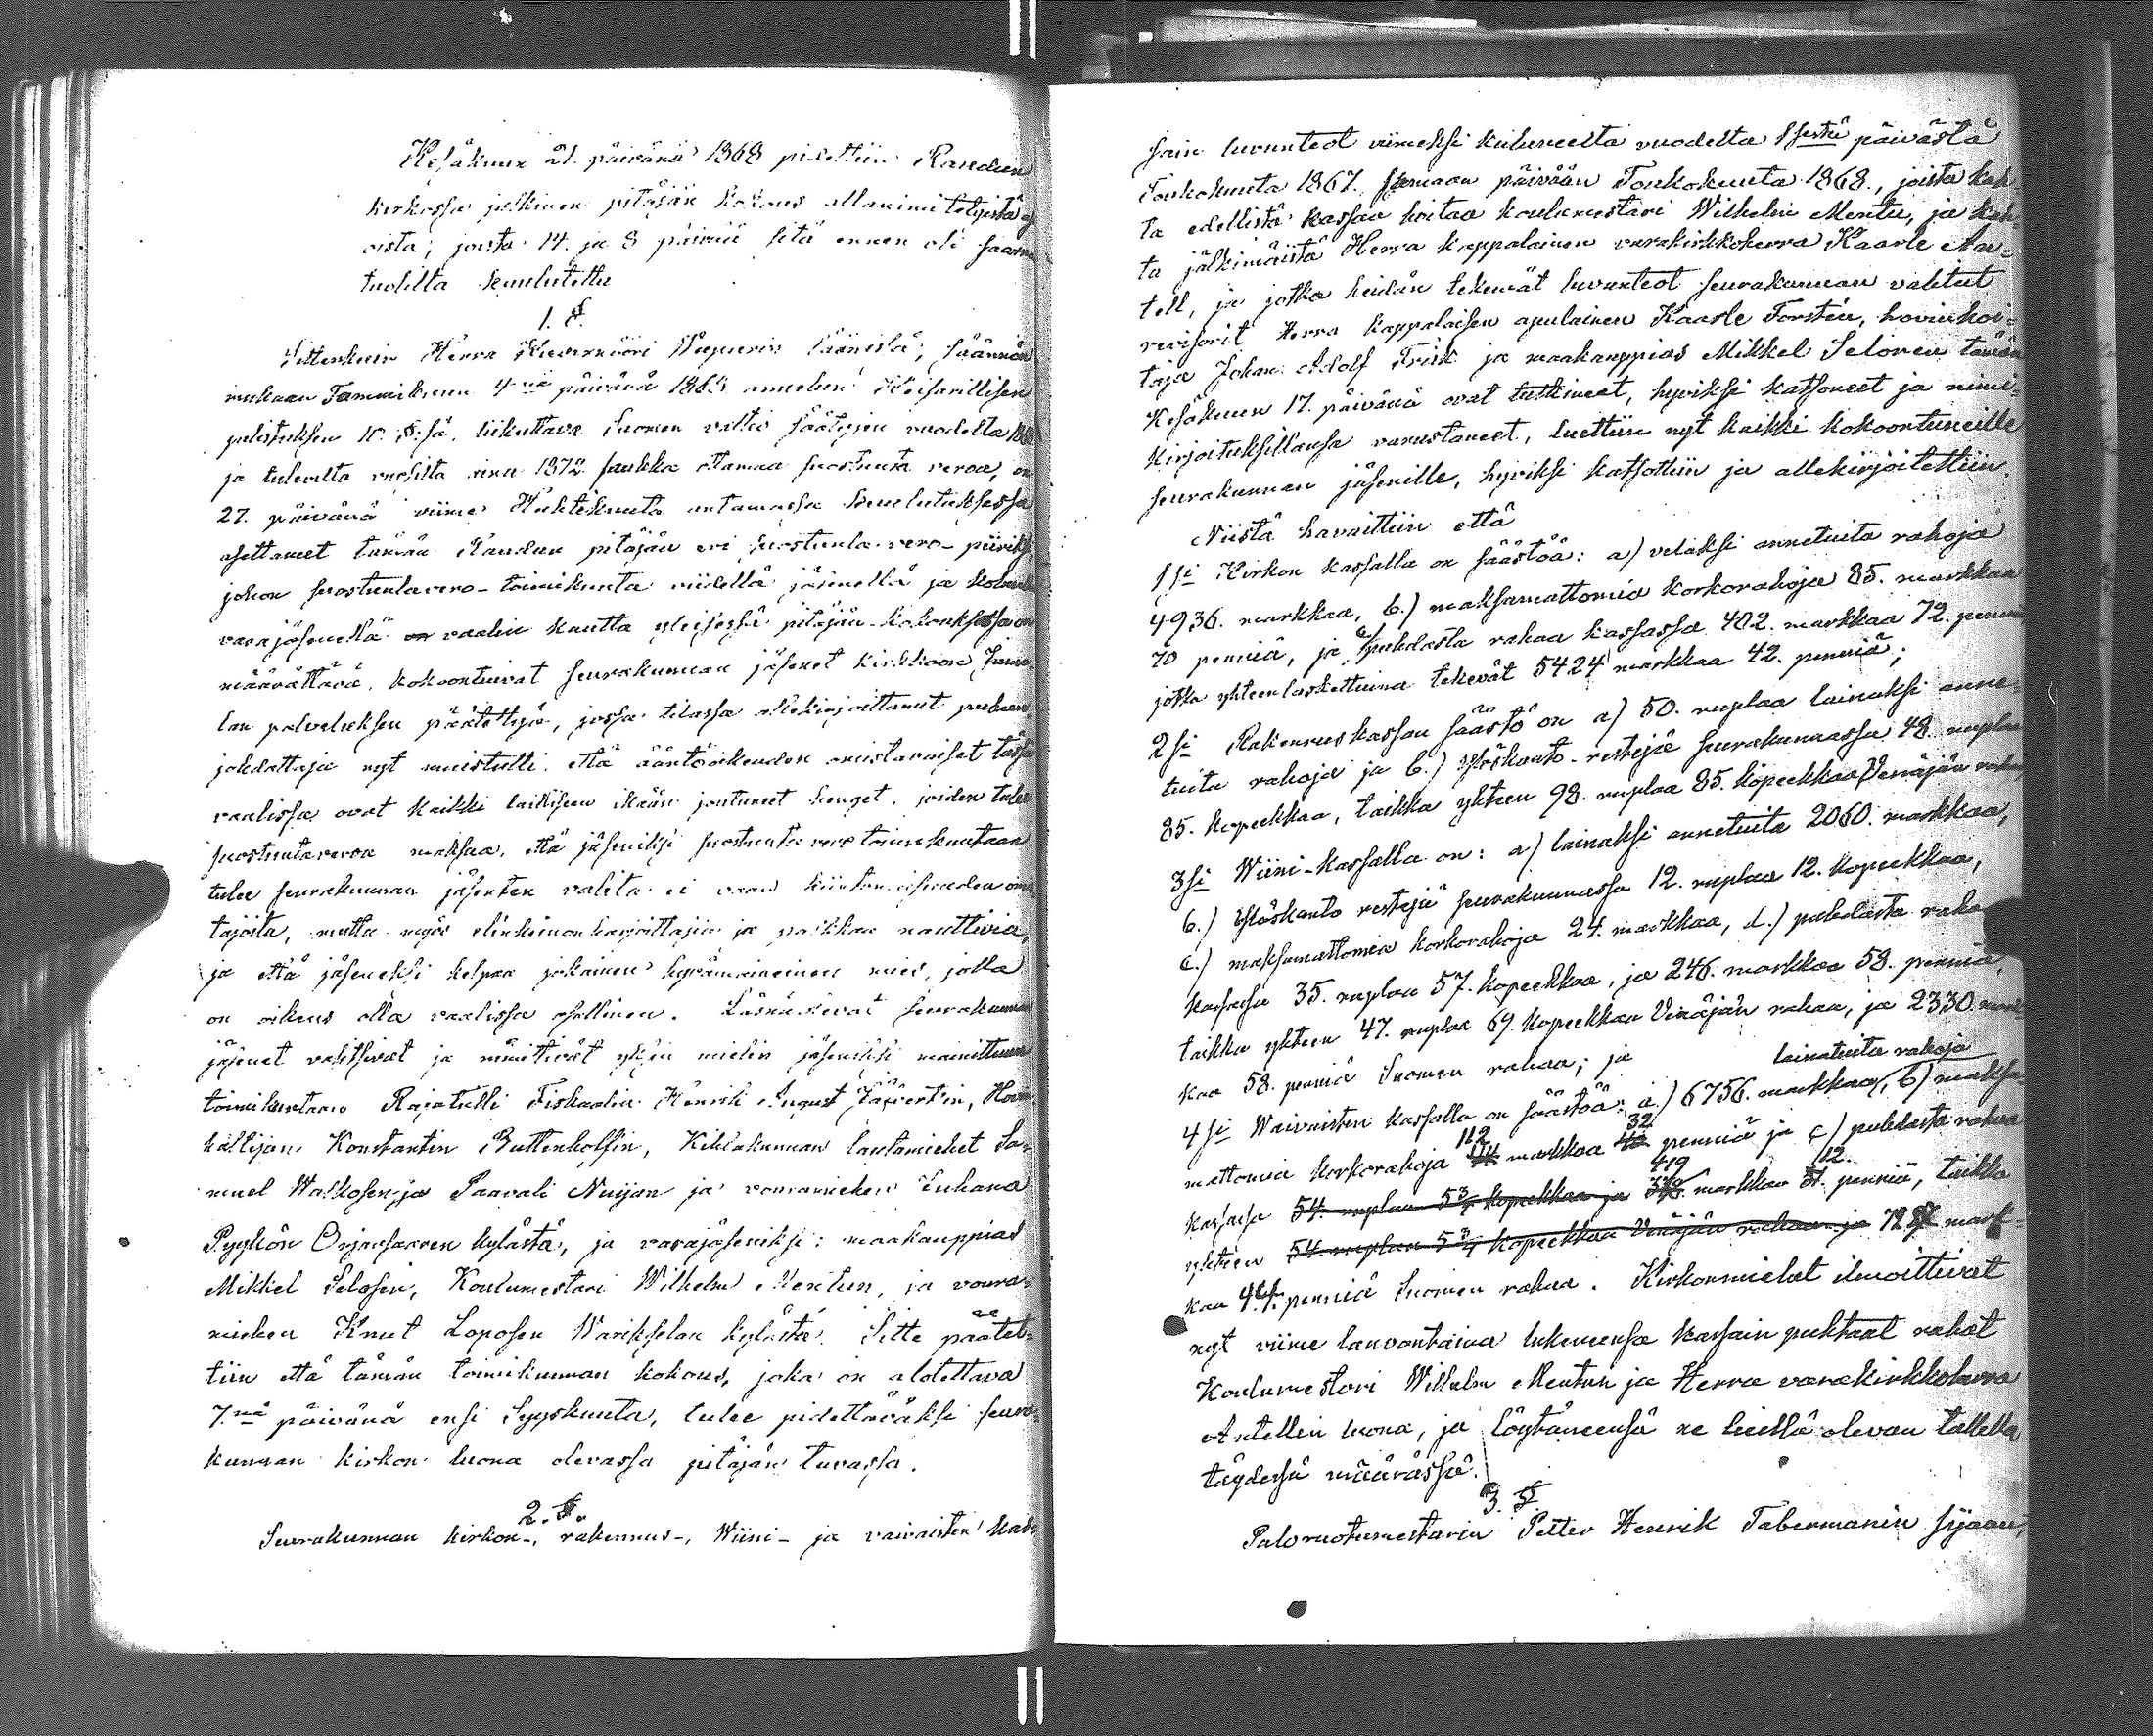 Kesäkuun 21. päivänä 1868 pidettiin Raudun
kirkossa julkinen pitäjän kokous allanimitetyistä
oista; josta 14. ja 8 päivää sitä ennen oli saarna
tuolilta kuulutettu
1. §.
Sittenkuin Herra Kuvernööri Wiipurin läänissä, säännön
mukaan Tammikuun 4nä päivänä 1865 annetun Keisarillisen
julistuksen 10. §:sä, liikuttava Suomen valtio säätyjen vuodelta
ja tulevilta vuosilta aina 1872 saakka ottamaa suostunta veroa, on
27. päivänä viime Huhtikuuta antamassa kuulutuksessa
asettanet tämän Raudun pitäjän eri suostunta-vero-piiriksi
johon suostuntavero-toimikunta viidellä jäsenellä ja kolmella
varajäsenellä on vaalin kautta yleisessä pitäjän-kokouksessa on
määrättävä, kokoontuivat seurakunnan jäsenet kirkkoon Juma
lan palveluksen päätettyä, jossa tilassa allekirjoittanut puheen
johdattaja nyt muistutti, että ääntöoikeuden omistavaiset tässä
vaalissa ovat kaikki lailliseen ikään joutuneet henget, joiden tulee
suostuntaveroa maksaa, että jäseniksi suostunta vero toimikuntaan
tulee seurakunnan jäsenten valita ei vaan kiinteimistöjen omis
tajoita, mutta myös elinkeinon harjoittajia ja palkkan nauttivia,
ja että jäseneksi kelpaa jokainen hyvämaineinen mies, jolla
on oikeus olla vaalissa osallinen. Läsnäolevat seurakunnan
jäsenet valitsivat ja nimittivät yksin mielin jäseniksi mainittuun
toimikuntaan Rajatulli Fiskaalin Henrik August Häfvertin, Hovin
haltijan Konstantin Buttenhoffin, Kihlakunnan lautamiehet Sa-
muel Walkosen ja Paavali Nuijan ja vouramiehen Juhana
Pyykön Orjansaaren kylästä, ja varajäseniksi: maakauppias
Mikkel Selosen, Koulumestari Wilhelm Mentun, ja voura-
miehen Knuut Loposen Warikselan kylästä. Sitte päätet-
tiin että tämän toimikunnan kokous, joka on alotettava
7.nä päivänä ensi Syyskuuta, tulee pidettäväksi seura
kunnan kirkon luona olevassa pitäjän tuvassa.
2. §.
Seurakunnan kirkon-, rakennus-, Wiini- ja vaivaisten kas-
sain luvunteot viimeksi kuluneelta vuodelta 1sestä päivästä
Toukokuuta 1867. samaan päivään Toukokuuta 1868., joista kah
ta edellistä kassaa hoitaa koulumestari Wilhelm Mentu, ja kah-
ta jälkimäistä Herra kappalainen varakirkkoherra Kaarle An-
tell, ja jotka heidän tekemät luvunteot seurakunnan valitut
revisorit Herra kappalaisen apulainen Kaarle Forstén, hovinhoi-
taja Johan Adolf Frisk ja maakauppias Mikkel Selonen tämän
Kesäkuun 17. päivänä ovat tutkineet, hyviksi katsoneet ja nimi-
kirjoituksillansa varustaneet, luettiin nyt kaikki kokoontuneille
seurakunnan jäsenille, hyviksi katsottiin ja allekirjoitettiin.
Niistä havaittiin että
1si Kirkon kassalla on säästöä: a) velaksi annetuita rahoja
4936. markkaa, b.) maksamattomia korkorahoja 85. markkaa
70 penniä, ja c/ puhdasta rahaa kassassa 402. markkaa 72. penniä
jotka yhteenlaskettuina tekevät 5424 markkaa 42. penniä;
2si Rakennuskassan säästö on a) 50. ruplaa lainaksi anne
tuita rahoja ja b.) Ylöskanto-restejä seurakunnassa 48 ruplaa
85. kopeekkaa, taikka yhteen 98. ruplaa 85. kopeekkaa Venäjän rahaa
3si Wiini-kassalla on: a) lainaksi annetuita 2060. markkaa,
b.) Ylöskanto restejä seurakunnassa 12. ruplaa 12. kopeekkaa,
c.) maksamattomia korkorahoja 24. markkaa, d.) puhdasta raha
kassassa 35. ruplaa 57. kopeekkaa, ja 246. markkaa 58. penniä,
taikka yhteen 47. ruplaa 69. kopeekkaa Venäjän rahaa, ja 2330. mark
kaa 58. penniä Suomen rahaa; ja
lainatuita rahoja
4si Waivaisten kassalla on säästöä: a.) 6756. markkaa, b) maksa-
mattomia korkorahoja 112 markkaa 32 penniä ja c) puhdasta rahaa
kassassa 54. ruplaa 5¾ kopeekkaa ja 419 markkaa 12. penniä, taikka
yhteen 54 ruplaa 5¾ kopeekkaa Venäjän rahaa ja 7287 mark-
kaa 44. penniä Suomen rahaa. Kirkonmiehet ilmoittivat
nyt viime lauvantaina lukeneensa kassain puhtaat rahat
Koulumestari Wilhelm Mentun ja Herra varakirkkoherra
Antellin luona, ja löytäneensä ne heillä olevan tallella
täydessä määrässä.
3. §
Paloruotumestarin Petter Henrik Tabermanin sijaan,